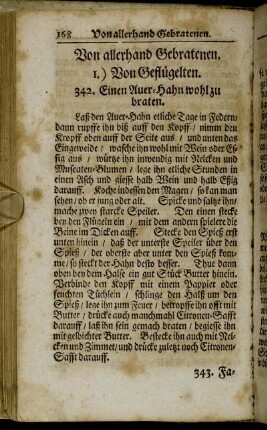 168 Von allerhand Gebratenen.
Von allerhand Gebratenen.
1.) Von Geflügelten.
342. Einen Auer-Hahn wohl zu
braten.
Laß den Auer-Hahn etliche Tage in Federn,
dann rupffe ihn biß auff den Kopff / nimm den
Kropff oben auff der Seite aus / und unten das
Eingeweide / wasche ihn wohl mit Wein oder Es-
sig aus / würtze ihn inwendig mit Nelcken und
Muscaten-Blumen / lege ihn etliche Stunden in
einen Asch und giesse halb Wein und halb Eßig
darauff. Koche indessen den Magen / so kan man
sehen / ob er jung oder alt. Spicke und saltze ihn/
mache zween starcke Speiler. Den einen stecke
bey den Flügeln ein / mit dem andern spielere die
Beine im Dicken auff. Stecke den Spieß erst
unten hinein / daß der unterste Speiler über den
Spieß / der oberste aber unter den Spieß kom-
me / so steckt der Hahn desto besser. Thue dann
oben bey dem Halse ein gut Stück Butter hinein.
Verbinde den Kopff mit einem Pappier oder
feuchten Tüchlein / schlinge den Halß um den
Spieß / lege ihn zum Feuer / betropffe ihn offt mit
Butter / drücke auch manchmahl Citronen-Safft
darauff / laß ihn fein gemach braten / begiesse ihn
mit gelbichter Butter. Bestecke ihn auch mit Nel-
cken und Zimmet / und drücke zuletzt noch Citronen-
Safft darauff.
343. Fa-